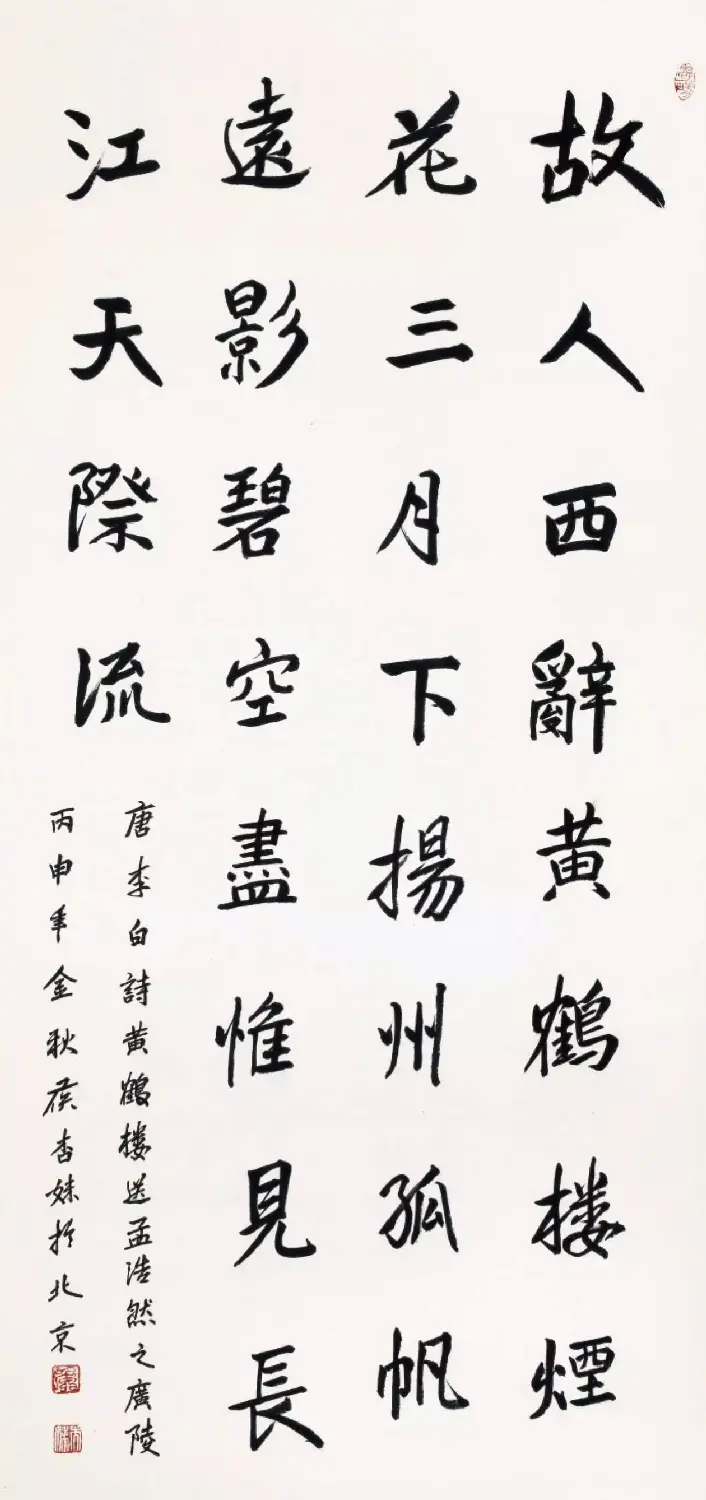 故人西辭黄鶴楼煙
花三月下揚州孤帆
遠影碧空盡惟見長
江天際流
唐李白詩黄鶴楼送孟浩然之廣陵
丙申年金秋侯杏妹於北京